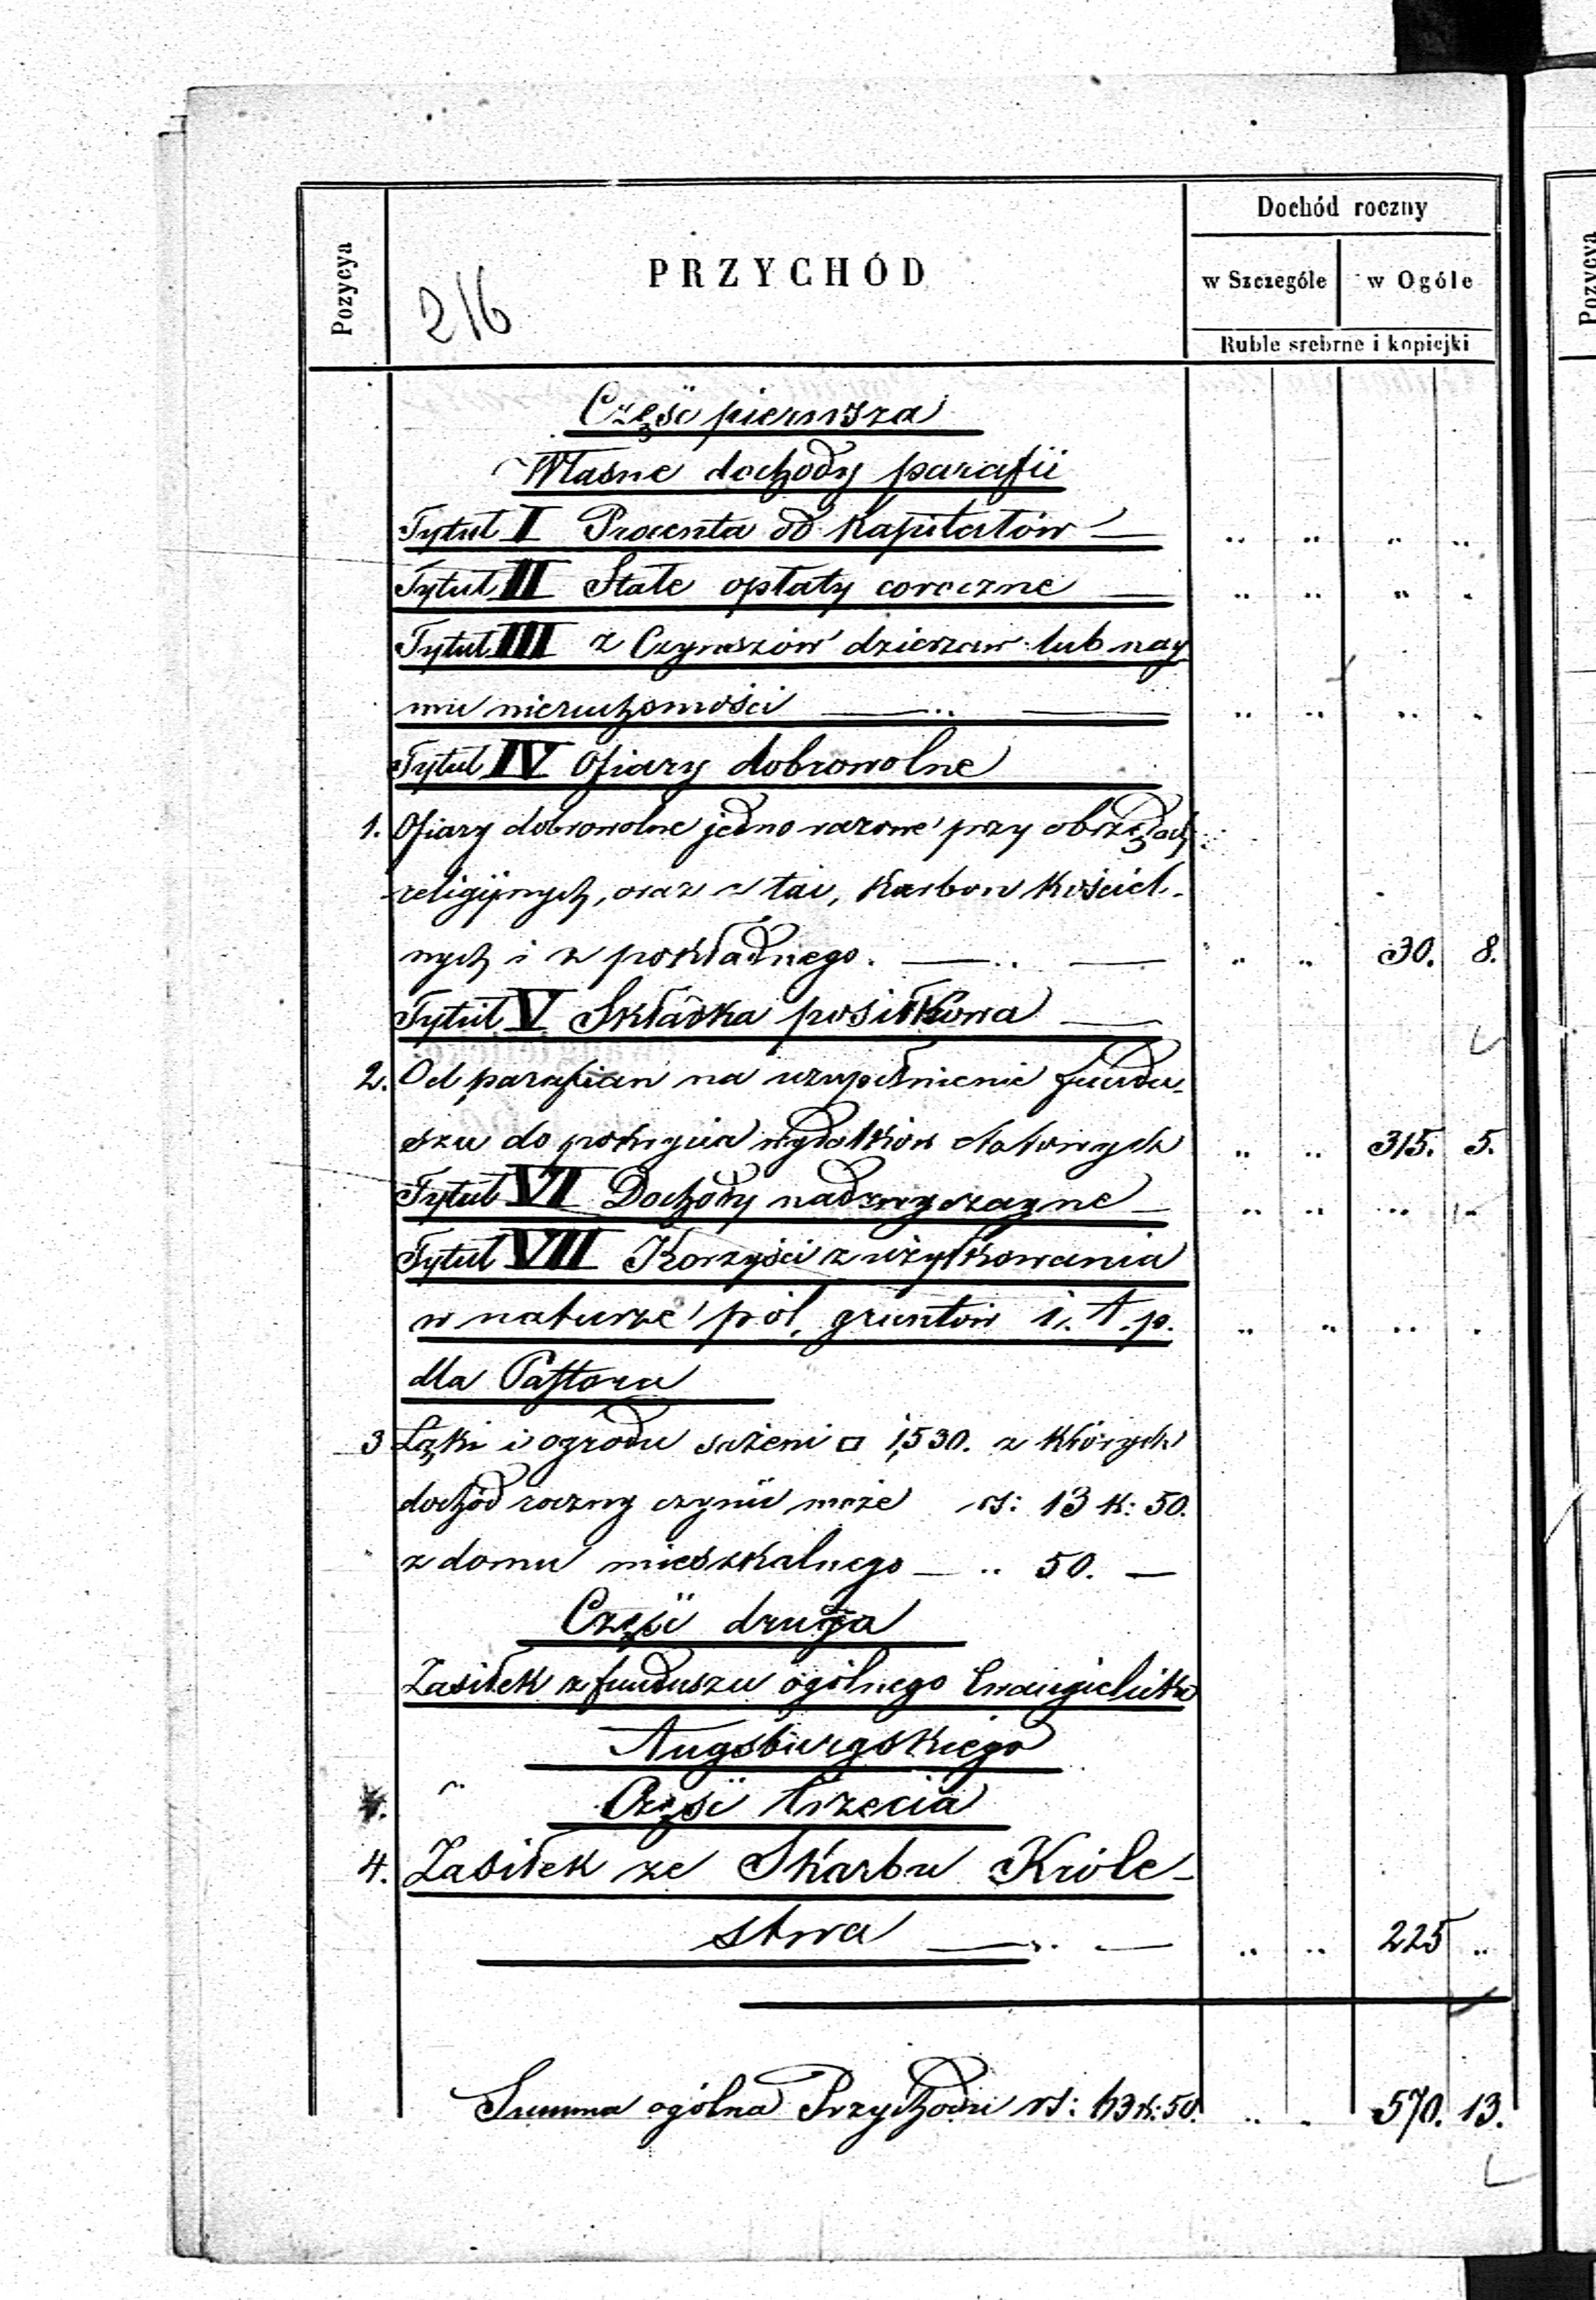 Dochód roczny
Pozycya
PRZYCHÓD
w Szczególe
w Ogóle
216
Ruble srebrne i kopiejki
Część pierwsza
Własne dochody parafii
Tytuł I Procenta od Kapitałów —
Tytuł II Stałe opłaty coroczne —
Tytuł III z Czynszów dzierzaw lub nay
mu nieruchomości — .. —
Tytuł IV Ofiary dobrowolne
1. Ofiary dobrowolne jedno razowe przy obrzędach
religijnych, oraz z tac, Karbon Kościel-
nych i z pokładnego. — .. — 30. 8.
Tytuł V Składka posiłkowa —
2. Od parafian na uzupełnienie fundu-
szu do pokrycia wydatków etatowych 315. 5.
Tytuł VI Dochody nadzwyczayne —
Tytuł VII Korzyści z użytkowania
w naturze pól, gruntów i. t. p.
dla Pastora
3 Łąki i ogrodu sążeni □ 1,530. z których
dochód roczny czynić może rs: 13 k: 50.
z domu mieszkalnego — .. 50. —
Część druga
Zasiłek z funduszu ogólnego Ewangielicko
Augsburgskiego
Część trzecia
4. Zasiłek ze Skarbu Króle-
stwa — .. — 225 ..
Summa ogólna Przychodu rs: 63 k: 50. 570. 13.
Pozycya